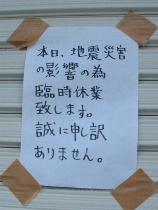 本日、地震災害
の影響の為
臨時休業
致します。
誠に申し訳
ありません。